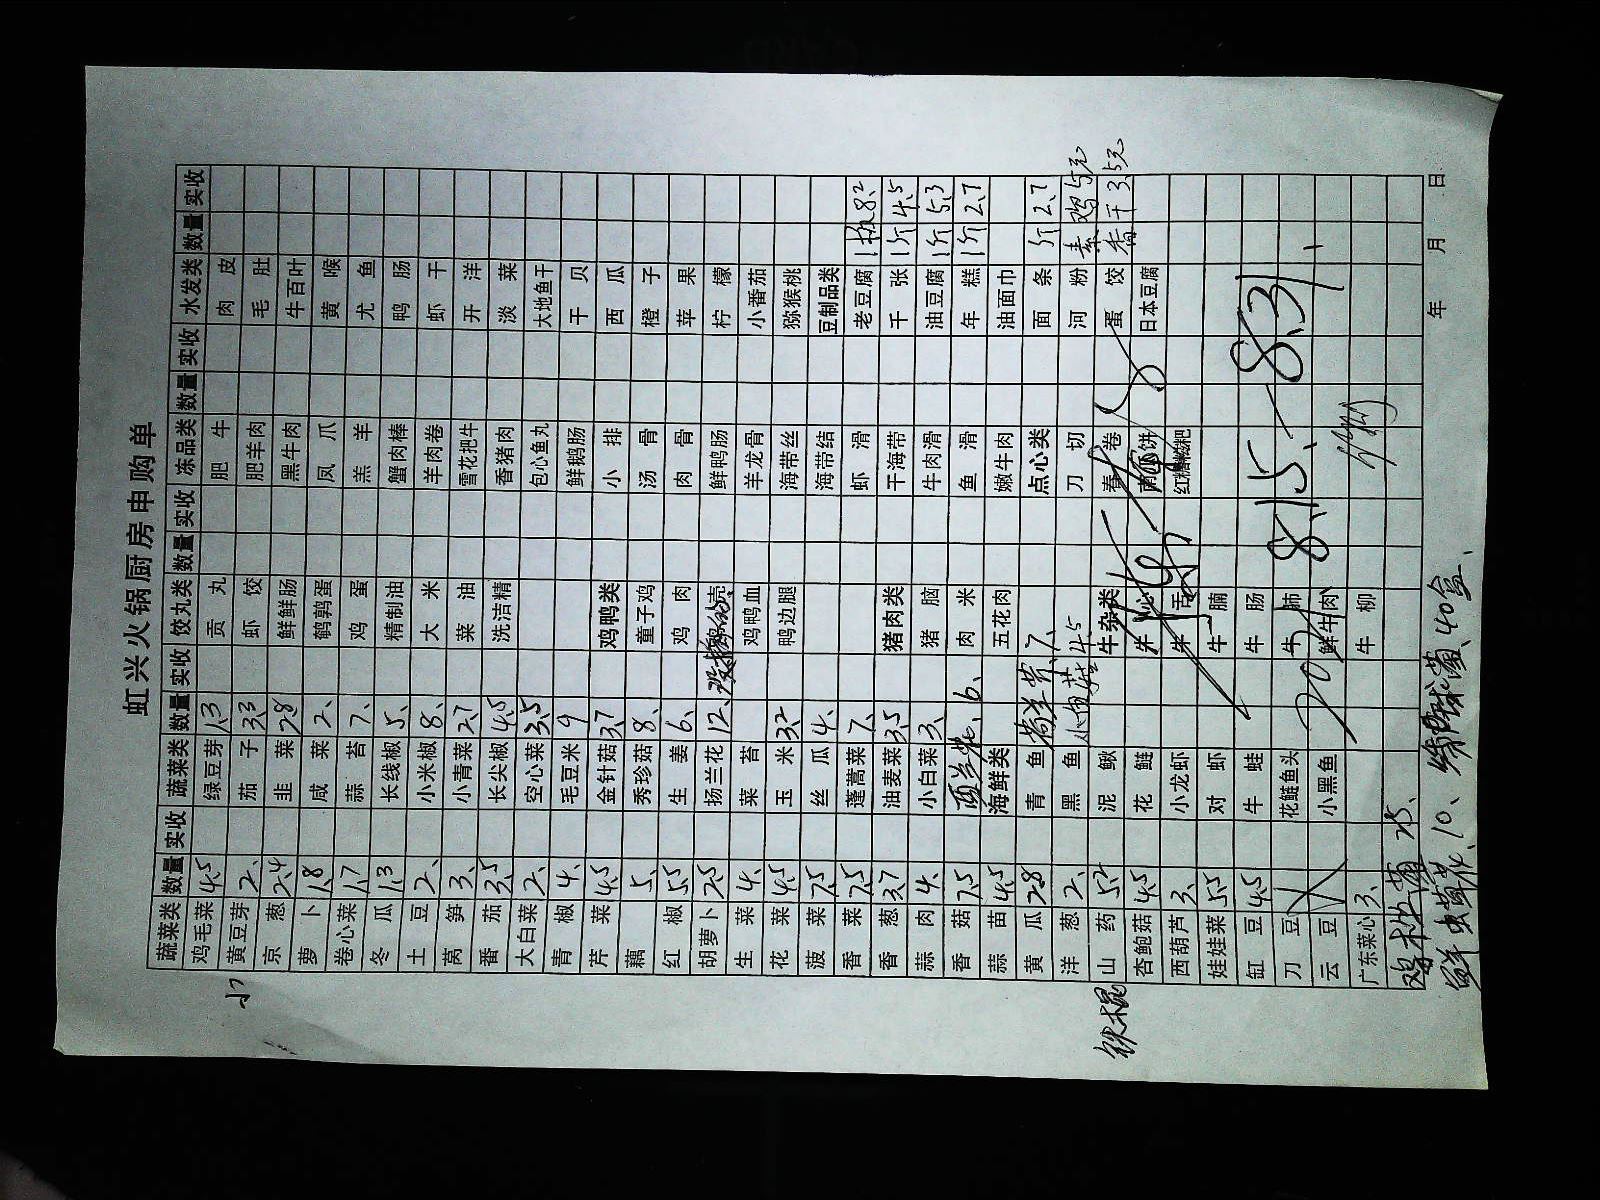 虹兴火锅厨房申购单
蔬菜类 数量 实收 蔬菜类 数量 实收 饺丸类 数量 实收 冻品类 数量 实收 水发类 数量 实收
鸡毛菜 4.5 绿豆芽 1.3 贡丸 肥牛 肉皮
黄豆芽 2、 茄子 3.3 虾饺 肥羊肉 毛肚
小 京葱 2.4 韭菜 2.8 鲜鲜肠 黑牛肉 牛百叶
萝卜 1.8 咸菜 2、 鹌鹑蛋 凤爪 黄喉
卷心菜 1.7 蒜苔 7、 鸡蛋 羔羊 尤鱼
冬瓜 1.3 长线椒 5、 精制油 蟹肉棒 鸭肠
土豆 2、 小米椒 8、 大米 羊肉卷 虾干
莴笋 3、 小青菜 2.7 菜油 雪花把牛 开洋
番茄 3.5 长尖椒 4.5 洗洁精 香猪肉 淡菜
大白菜 2、 空心菜 3.5 包心鱼丸 大地鱼干
青椒 4、 毛豆米 9 鲜鹅肠 干贝
芹菜 4.5 金针菇 3.7 鸡鸭类 小排 西瓜
藕 5、 秀珍菇 8、 童子鸡 汤骨 橙子
红椒 5.5 生姜 6、 鸡肉 肉骨 苹果
胡萝卜 2.5 扬兰花 12、 鲜鸭肠 柠檬
生菜 4、 菜苔 鸡鸭血 羊龙骨 小番茄
花菜 4.5 玉米 3.2 鸭边腿 海带丝 猕猴桃
菠菜 7.5 丝瓜 4、 海带结 豆制品类
香菜 7.5 蓬蒿菜 7、 虾滑 老豆腐 1板 8.2
香葱 3.7 油麦菜 3.5 猪肉类 干海带 千张 1斤 4.5
蒜肉 4、 小白菜 3、 猪脑 牛肉滑 油豆腐 1斤 5.3
香菇 7.5 西兰花 6、 肉米 鱼滑 年糕 1斤 2.7
蒜苗 4.5 海鲜类 五花肉 嫩牛肉 油面巾
黄瓜 2.8 青鱼 7、 点心类 面条 斤 2.7
洋葱 2、 黑鱼 4.5 刀切 河粉 素鸡 5元
铁棍 山药 5.2 泥鳅 牛杂类 春卷 蛋饺 香干 3.5元
杏鲍菇 4.5 花鲢 日本豆腐
西葫芦 3、 小龙虾 牛舌 红糖糍粑
娃娃菜 5.5 对虾 牛腩
缸豆 4.5 牛蛙 牛肠
刀豆 花鲢鱼头 牛肺
云豆 小黑鱼 鲜牛肉
广东菜心 3、 牛柳
8.15—8.31
年 月 日
鸡枞菌 25、
鲜虫草花 10、 绣球菌、40盒、